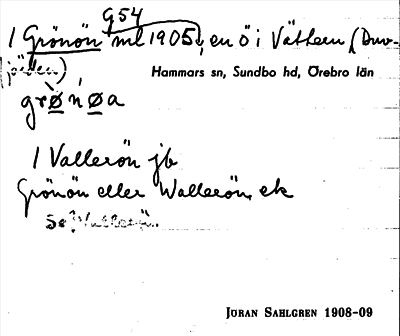 G54
1 Grönön ml 1905, en ö i Vättern (Duv-
Hammars sn, Sundbo hd, Örebro län
grønøa
1 Vallerön jb
Grönön eller Wallerön ek
Se
JÖRAN SAHLGREN 1908-09